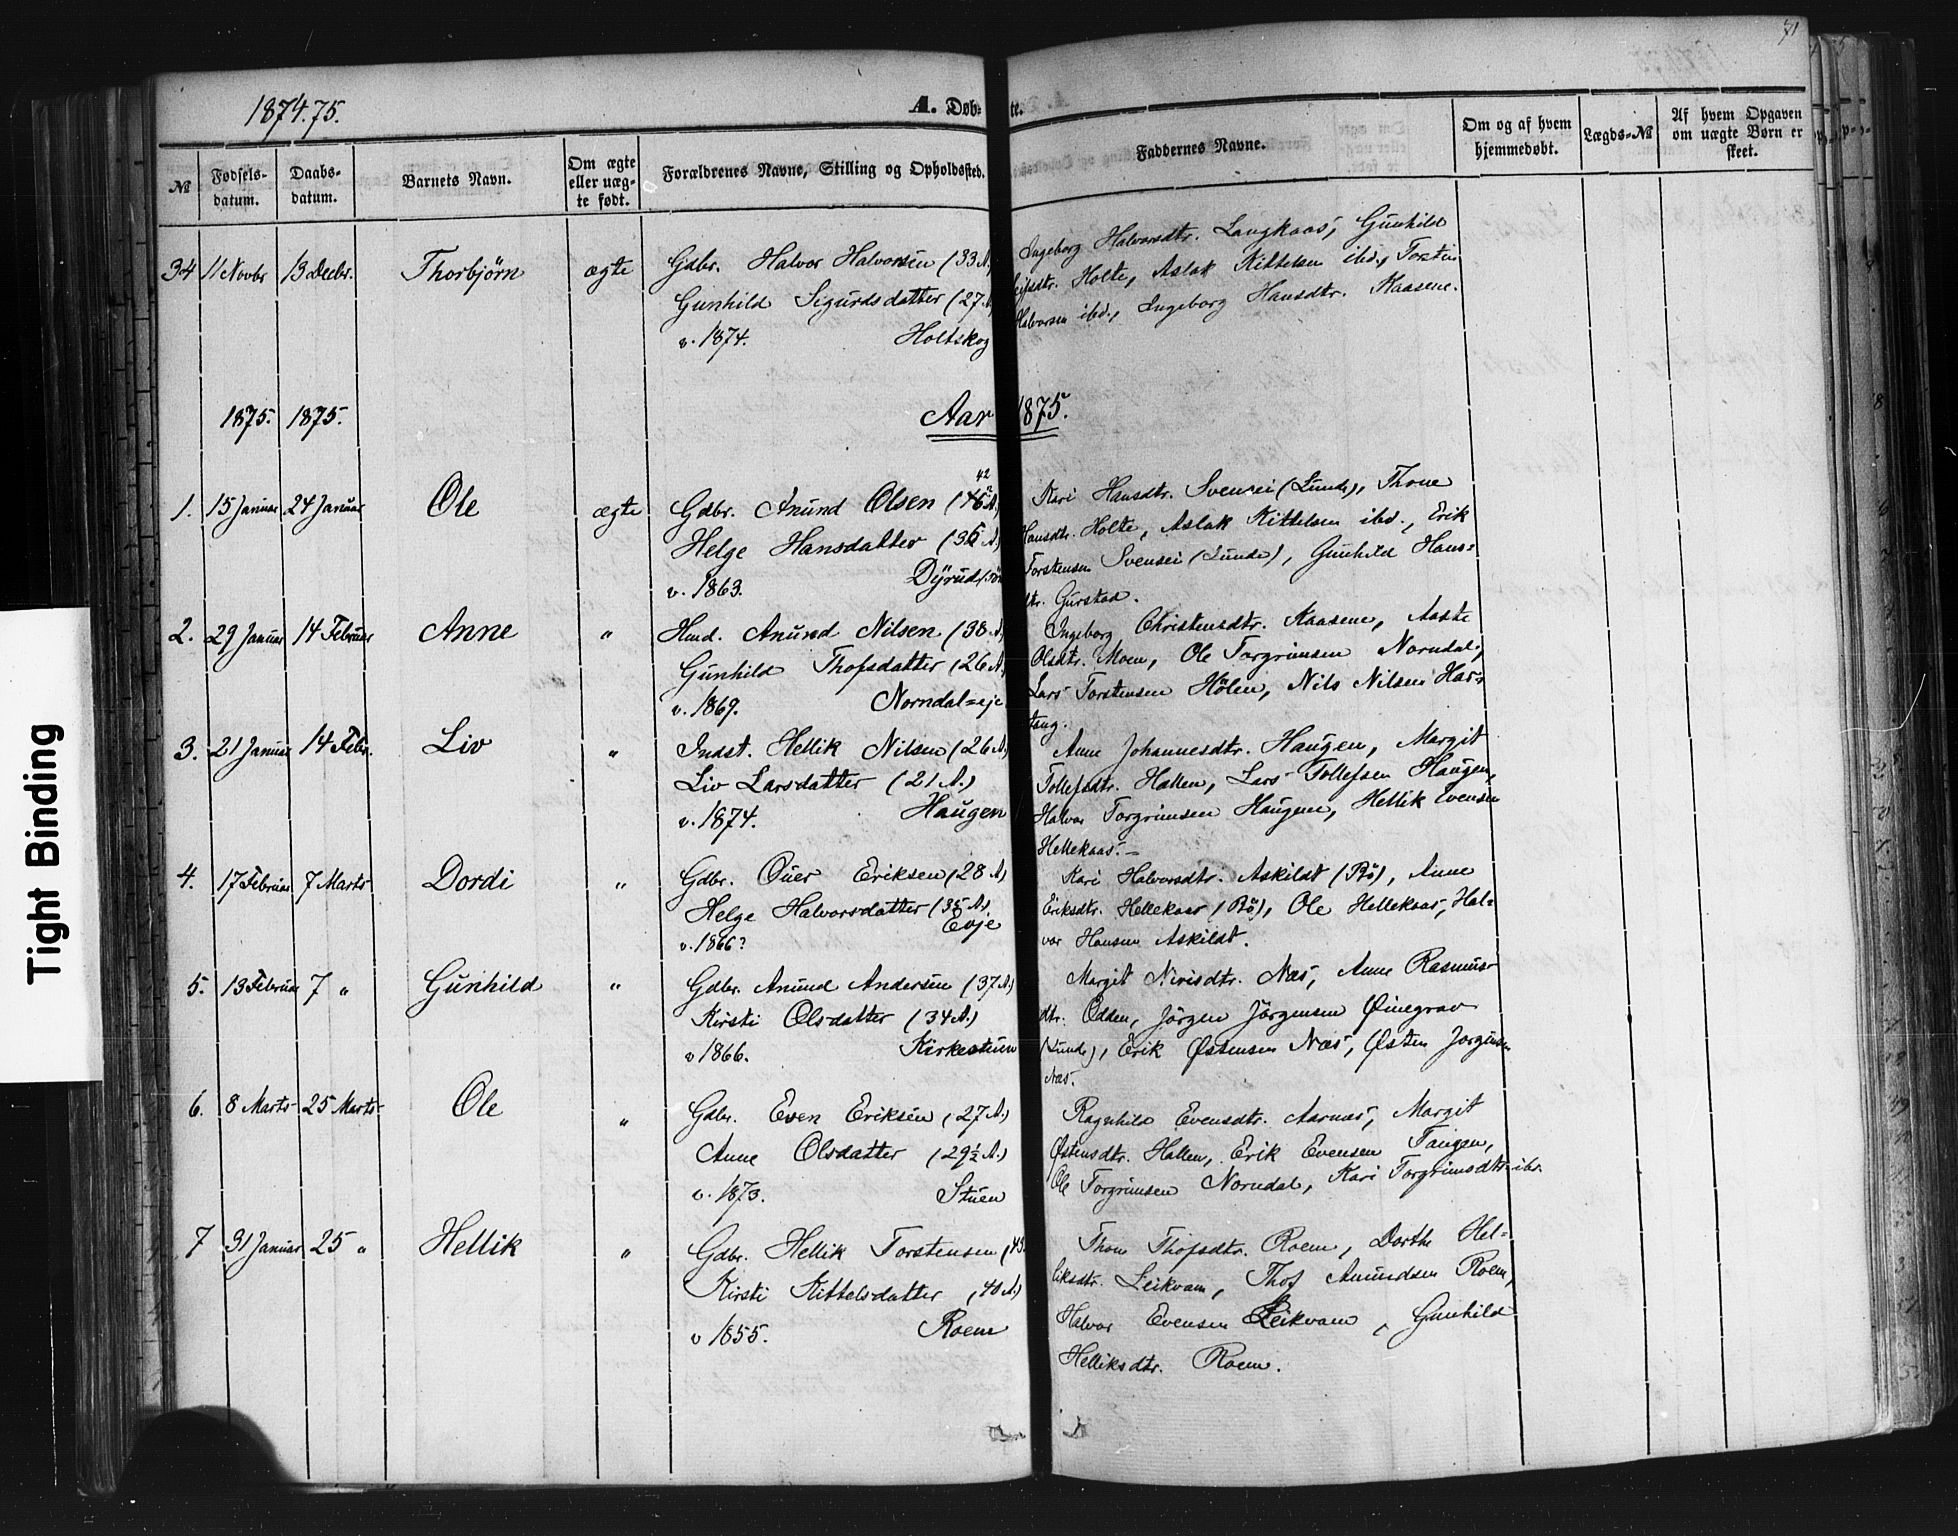 71
1874.75.
A. Døb- te.
№ Fødsels-datum. Daabs-datum. Barnets Navn. Om ægte eller uæg-te født. Forældrenes Navne, Stilling og Opholdssted. Faddernes Navne. Om og af hvem hjemmedøbt. Lægds-№ Af hvem Opgaven om uægte Børn er skeet.
34 11 Novbr 13 Decbr. Thorbjörn ægte Gdbr. Halvor Halvorsen (33 A) Ingeborg Halvorsdtr. Langkaas, Gunhild
Gunhild Sigurdsdatter (27 A Holte, Aslak Kittelsen ibd., Torstin
v. 1874. Holtskog Halvorsen ibd., Ingeborg Hansdtr. Kaasene.
1875. 1875. Aar 1875.
1. 15 Januar 24 Januar Ole ægte Gdbr. Anund Olsen (42 A. Kari Hansdtr. Svensei (Lunde), Thone
Helge Hansdatter (36 A.) Hansdtr. Holte, Aslak Kittelsen ibd., Erik
v. 1863. Dyrud Torstensen Svensei (Lunde), Gunhild Hans=
dtr. Gurstad.
2. 29 Januar 14 Februar Anne " Hmd. Anund Nilsen (38 A) Ingeborg Christensdtr. Kaasene, Aaste
Gunhild Thofsdatter (26 A. Olsdtr. Moen, Ole Torgrimsen Norndal,
v. 1869. Norndal=eje Lars Torstensen Hölen, Nils Nilsen Has=
tang.
3. 21 Januar 14 Febr. Liv " Indst. Hellik Nilsen (26 A) Anne Johannesdtr. Haugen, Margit
Liv Larsdatter (21 A.) Tollefsdtr. Hallen, Lars Tollefsen Haugen,
v. 1874. Haugen Halvor Torgrimsen Haugen, Hellik Evensen
Hellekaas.–
4. 17 Februar 7 Marts Dordi " Gdbr. Ouer Eriksen (28 A) Kari Halvorsdtr. Askildt (Bö), Anne
Helge Halvorsdatter (35 A). Eriksdtr. Hellekaas (Bö), Ole Hellekaas, Hal=
v. 1866? Evje vor Hansen Askildt.
5. 13 Februar 7 " Gunhild " Gdbr. Anund Andersen (37 A) Margit Nirisdtr. Næs, Anne Rasmus-
Kirsti Olsdatter (34 A.) dtr. Odden, Jörgen Jörgensen Øinegrav
v 1866. Kirkestuen (Lunde), Erik Østensen Næs, Østen Jorgensen
Næs.
6. 8 Marts 25 Marts Ole " Gdbr. Even Eriksen (27 A.) Ragnhild Evensdtr. Aarnæs, Margit
Anne Olsdatter (29½ A.) Østensdtr. Hallen, Erik Evensen Tangen,
v. 1873. Stuen Ole Torgrimsen Norndal, Kari Torgrimsdtr. ibd.
7 31 Januar 25 " Hellik " Gdbr. Hellik Torstensen (43. Thone Thofsdtr. Roem, Dorthe Hel=
Kirsti Kittelsdatter (40 A) liksdtr. Leikvam, Thof Amundsen Roem,
v 1855. Roem Halvor Evensen Leikvam, Gunhild
Helliksdtr. Roem.
Tight Binding